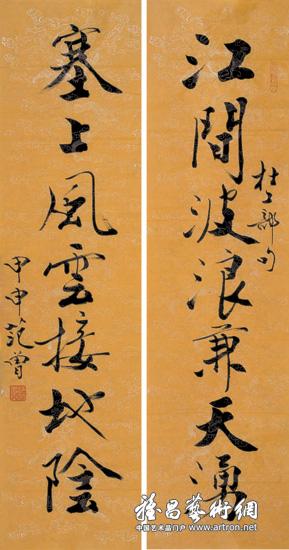 江間波浪兼天湧
杜工部句
塞上風雲接地陰
甲申范曾
雅昌藝術網
中国艺术品门户 www.artron.net